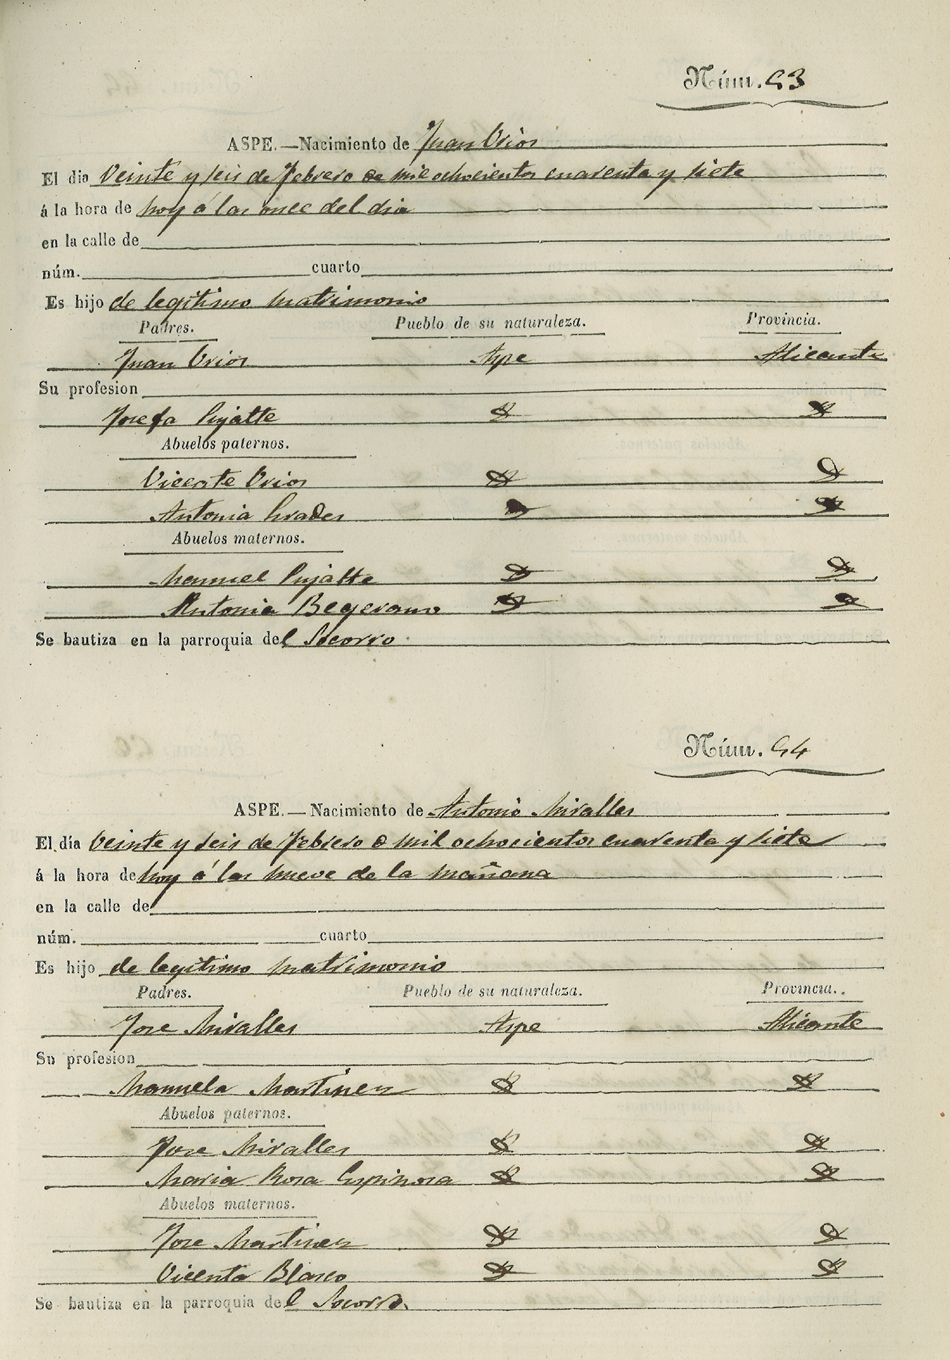 Núm. 43
ASPE.—Nacimiento de Juan Orios
El dia Veinte y seis de Febrero de mil ochocientos cuarenta y siete
á la hora de hoy á las once del dia
en la calle de
núm. cuarto
Es hijo de legitimo matrimonio
Padres. Pueblo de su naturaleza. Provincia.
Juan Orios Aspe Alicante
Su profesion
Josefa Pujalte
Abuelos paternos.
Vicente Orios
Antonia Prades
Abuelos maternos.
Manuel Pujalte
Antonia Begerano
Se bautiza en la parroquia del Socorro
Núm. 44
ASPE.—Nacimiento de Antonio Miralles
El día Veinte y seis de Febrero de mil ochocientos cuarenta y siete
á la hora de hoy á las nueve de la mañana
en la calle de
núm. cuarto
Es hijo de legitimo matrimonio
Padres. Pueblo de su naturaleza. Provincia.
Jose Miralles Aspe Alicante
Su profesion
Manuela Martinez
Abuelos paternos.
Jose Miralles
Maria Rosa Espinosa
Abuelos maternos.
Jose Martinez
Vicenta Blasco
Se bautiza en la parroquia del Socorro.